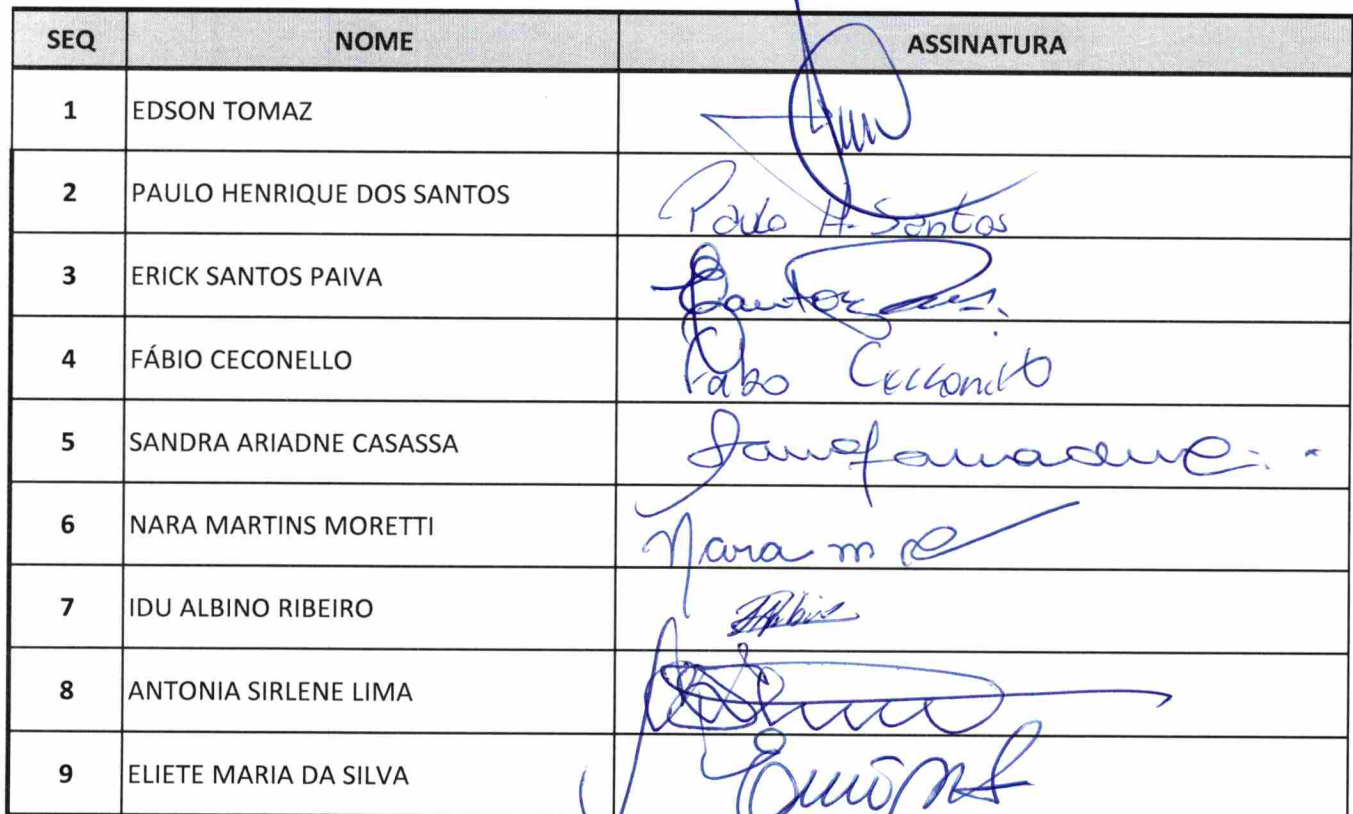 SEQ NOME ASSINATURA
1 EDSON TOMAZ
2 PAULO HENRIQUE DOS SANTOS Paulo H. Santos
3 ERICK SANTOS PAIVA
4 FÁBIO CECONELLO Fabio Ceconello
5 SANDRA ARIADNE CASASSA
6 NARA MARTINS MORETTI Nara m
7 IDU ALBINO RIBEIRO
8 ANTONIA SIRLENE LIMA
9 ELIETE MARIA DA SILVA